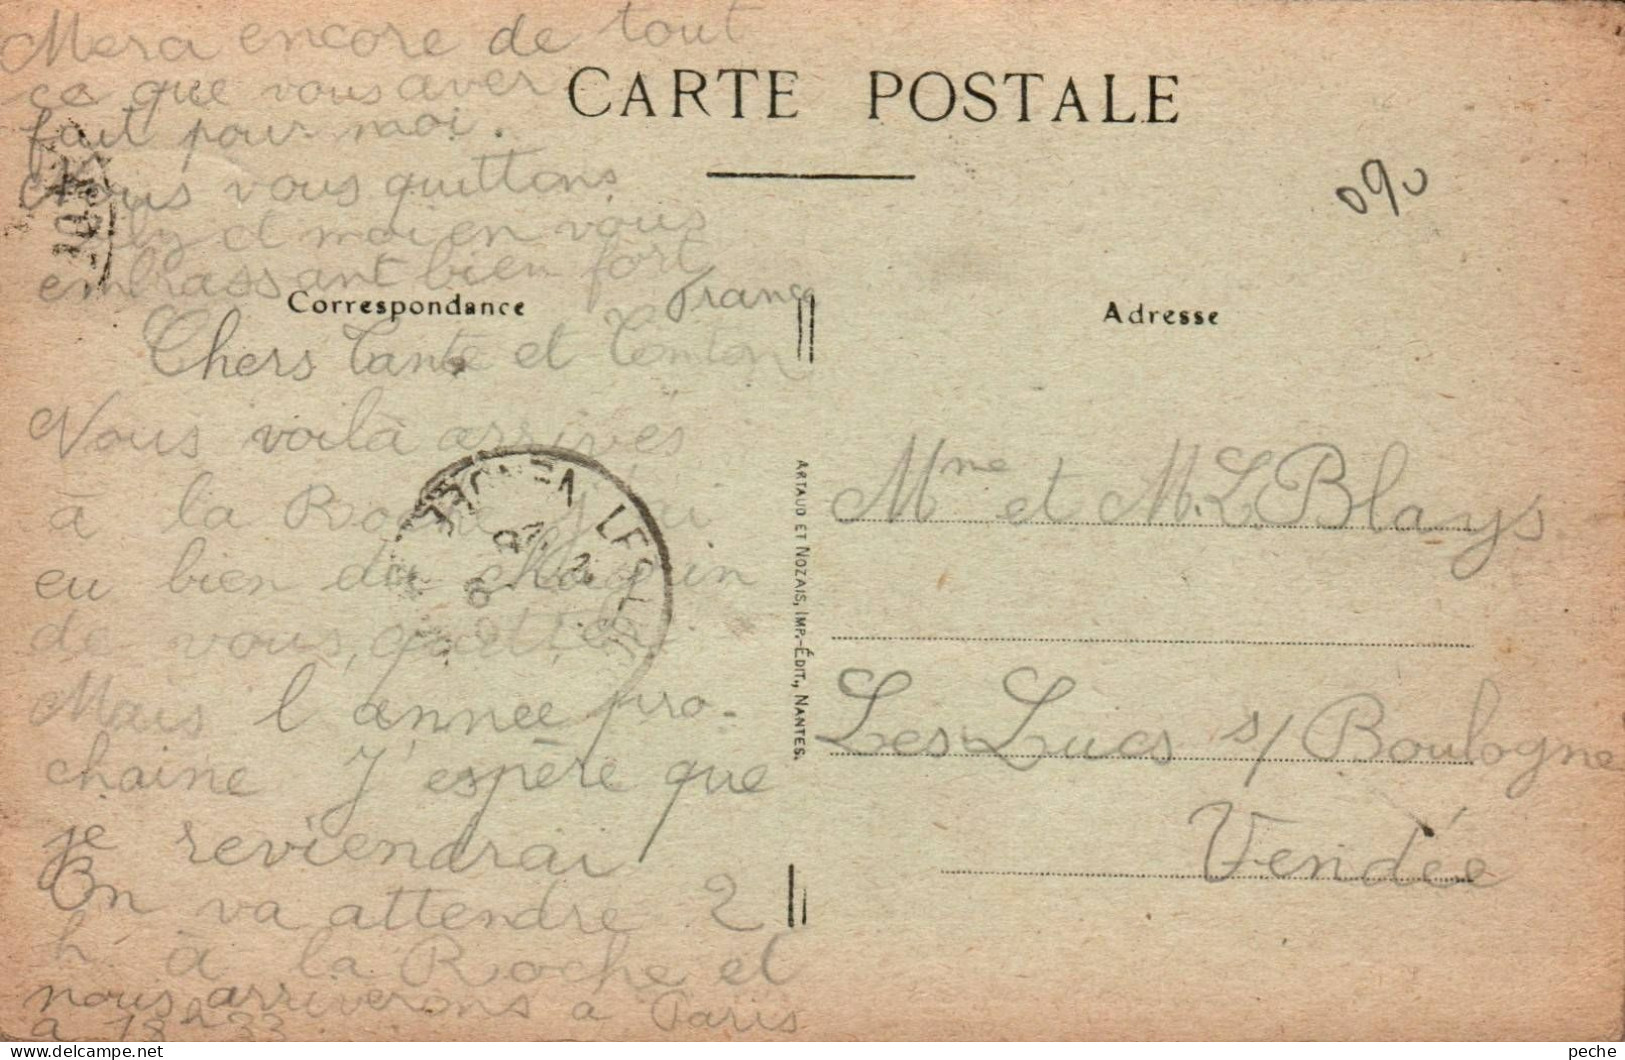 CARTE POSTALE
090
Correspondance
Adresse
Chers Tante et Tonton
Vous voilà arrivés
à la Roche J'ai
eu bien du chagrin
de vous quitter
Mais l'année pro-
chaine J'espère que
je reviendrai
On va attendre 2
h à la Roche et
nous arriverons a Paris
a 18h33
Mersa encore de tout
ce que vous aver
fait pour moi.
Nous vous quittons
et moi en vous
embrassant bien fort
Franç
Mme et M. L. Blays
Les Lucs s/ Boulogne
Vendée
ARTAUD ET NOZAIS, IMP.-ÉDIT., NANTES.
LES LUC
VENDEE
peche